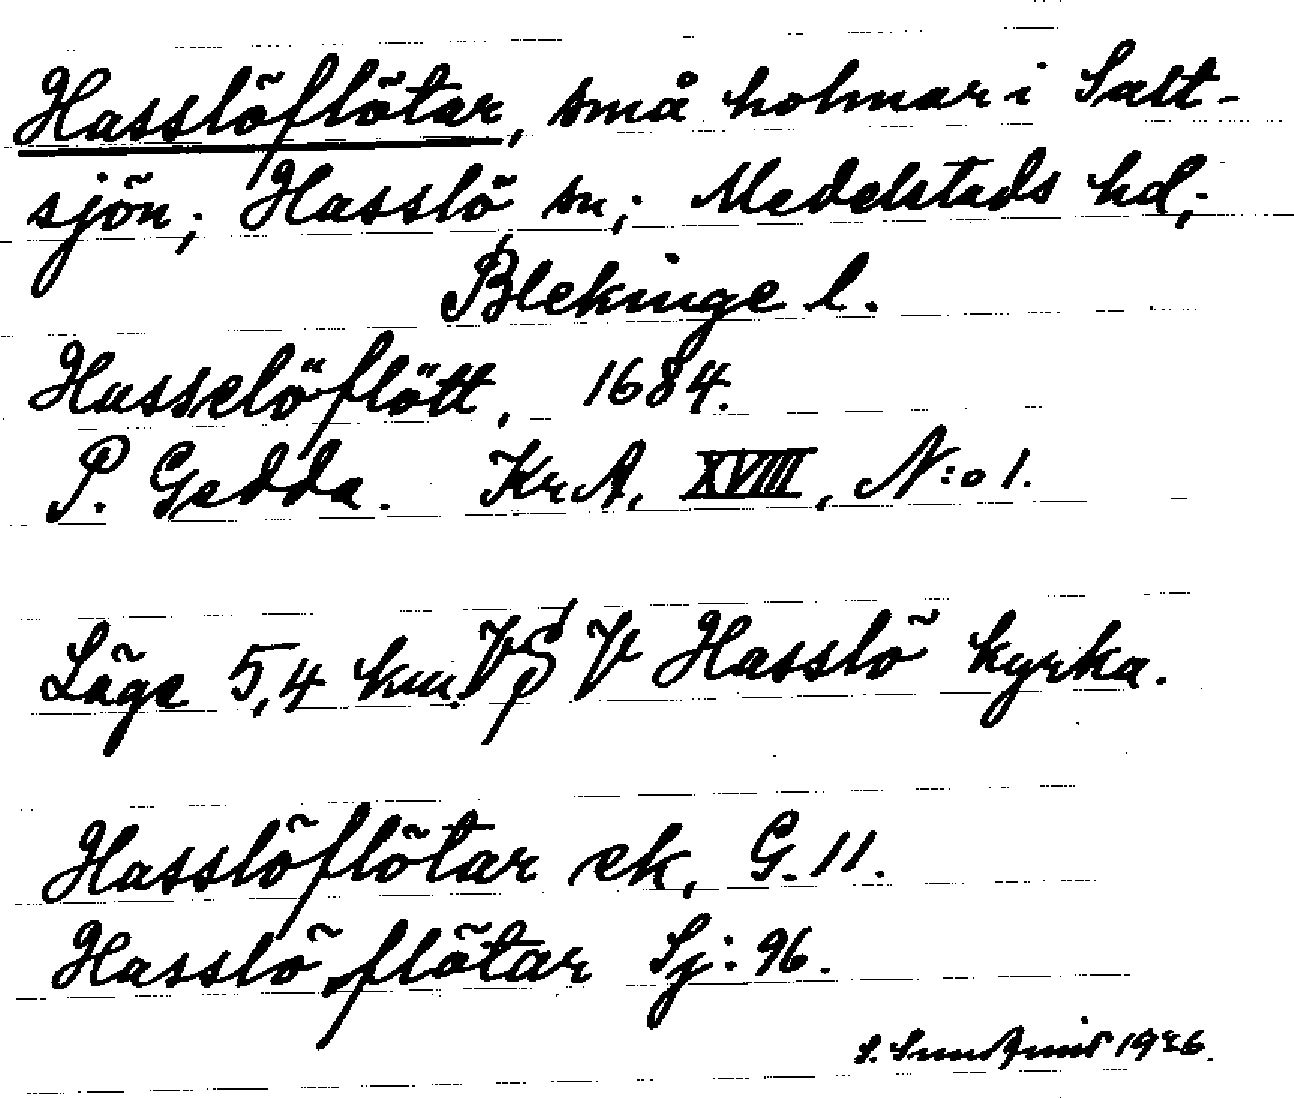 Hasslöflötar, små holmar i Salt-
sjön; Hasslö sn; Medelstads hd;
Blekinge l.
Hasselöflött, 1684.
P. Gedda. KrA, XVIII, N:o 1.
Läge 5,4 km. VSV Hasslö kyrka.
Hasslöflötar ek, G. 11.
Hasslö flötar Sj: 96.
S. 1926.